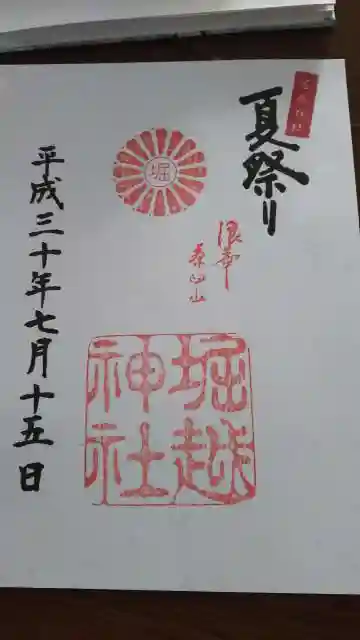 夏祭り
堀
浪華
茶臼山
堀越
神社
平成三十年七月十五日